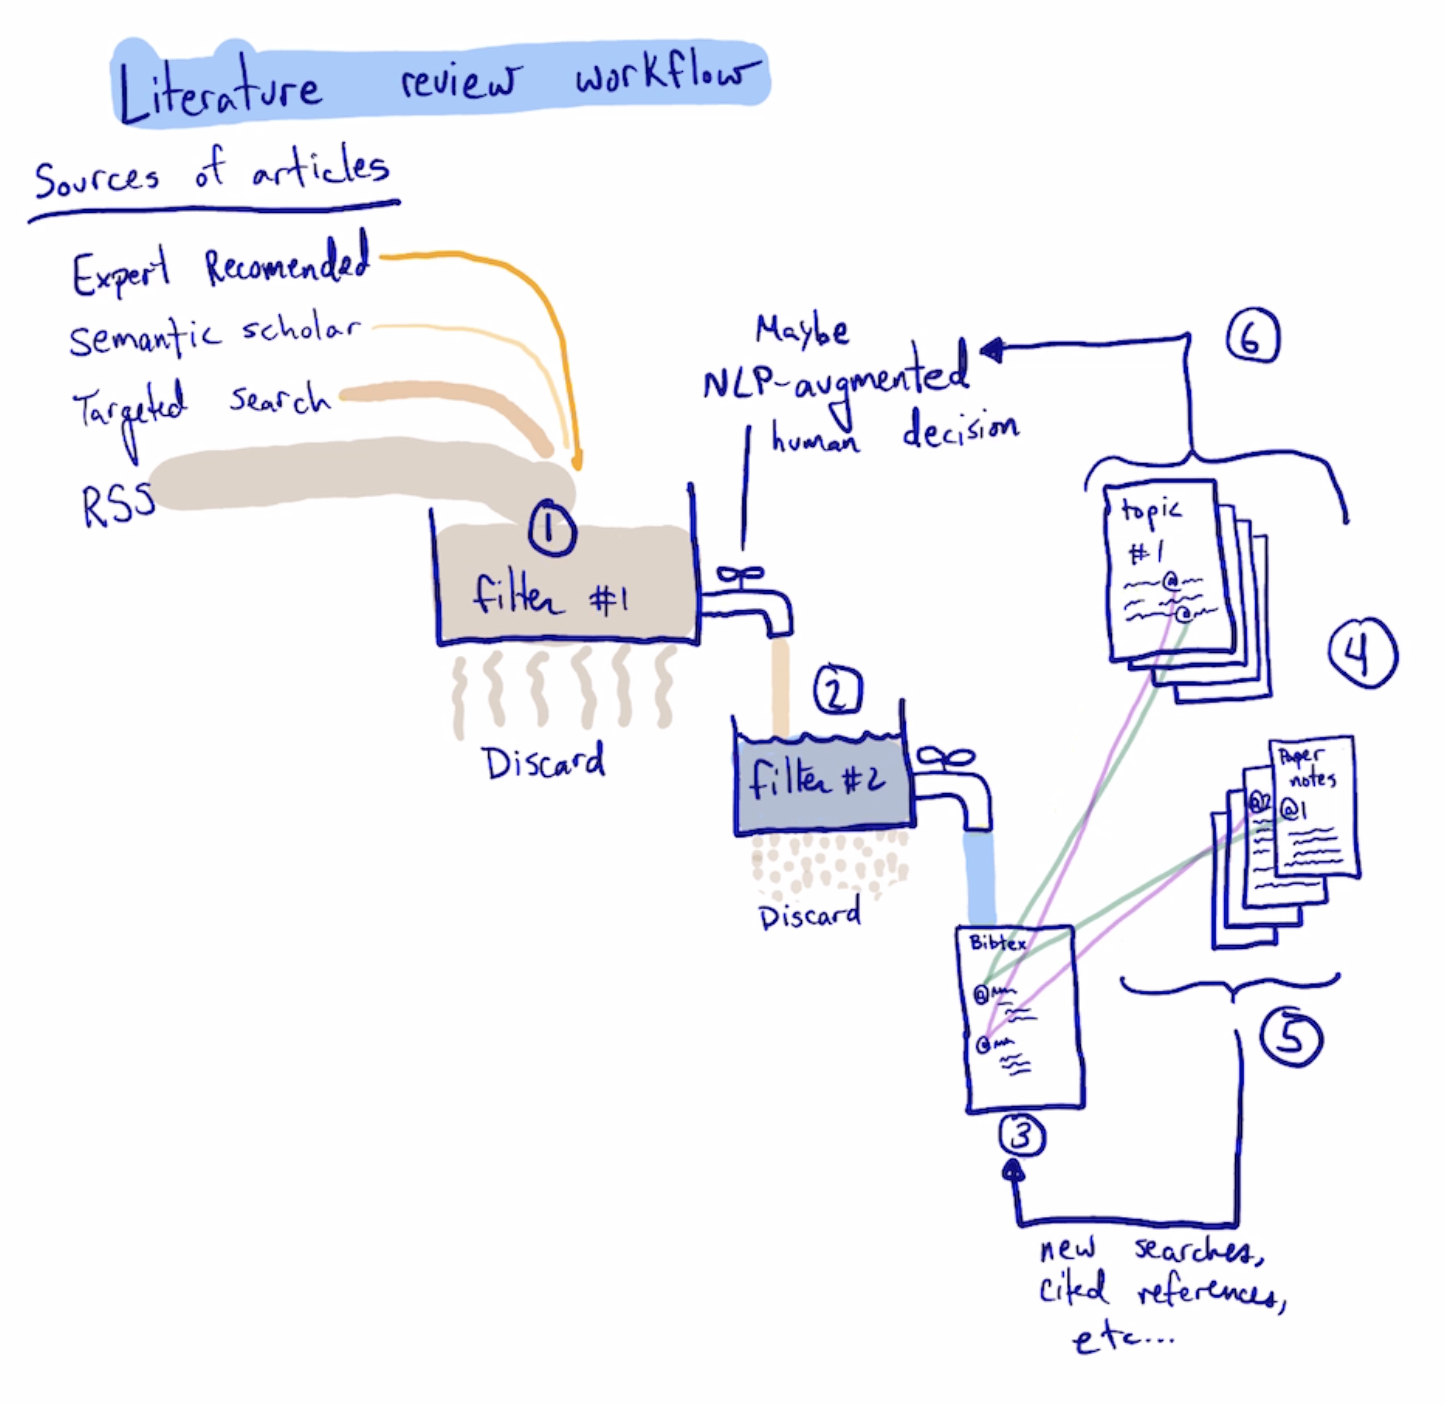 Literature review workflow
Sources of articles
Expert Recomended
Semantic scholar
Targeted search
RSS
1
filter #1
Discard
Maybe
NLP-augmented
human decision
2
filter #2
Discard
Bibtex
@
@
3
topic
#1
@
@
4
Paper
notes
@1
@2
5
6
new searches,
cited references,
etc...